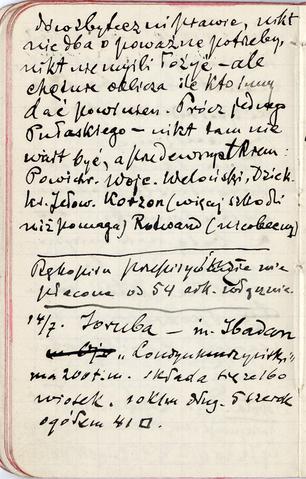 nikt
nie dba o poważne potrzeby,
nikt nie myśli łożyć – ale
chętnie oblicza ile kto inny
dać powinien. Prócz jednego
Pułaskiego – nikt tam nie
wart być, a przedewszyst Krem:
Powidz. Woje. Weloński, Dziek.
ks. Jełow. Korzon (więcej szkodzi
niż pomaga) Rolward (nieobecny)
Rękopisu przepisywanie nie
płacone od 54 ark. włącznie.
14/7. Joruba – m. Ibadan
„Londyn murzyński"
ma 200 t. m. składa się ze 160
wiosek. 10 klm dług. 5 szerok
ogółem 41 □.